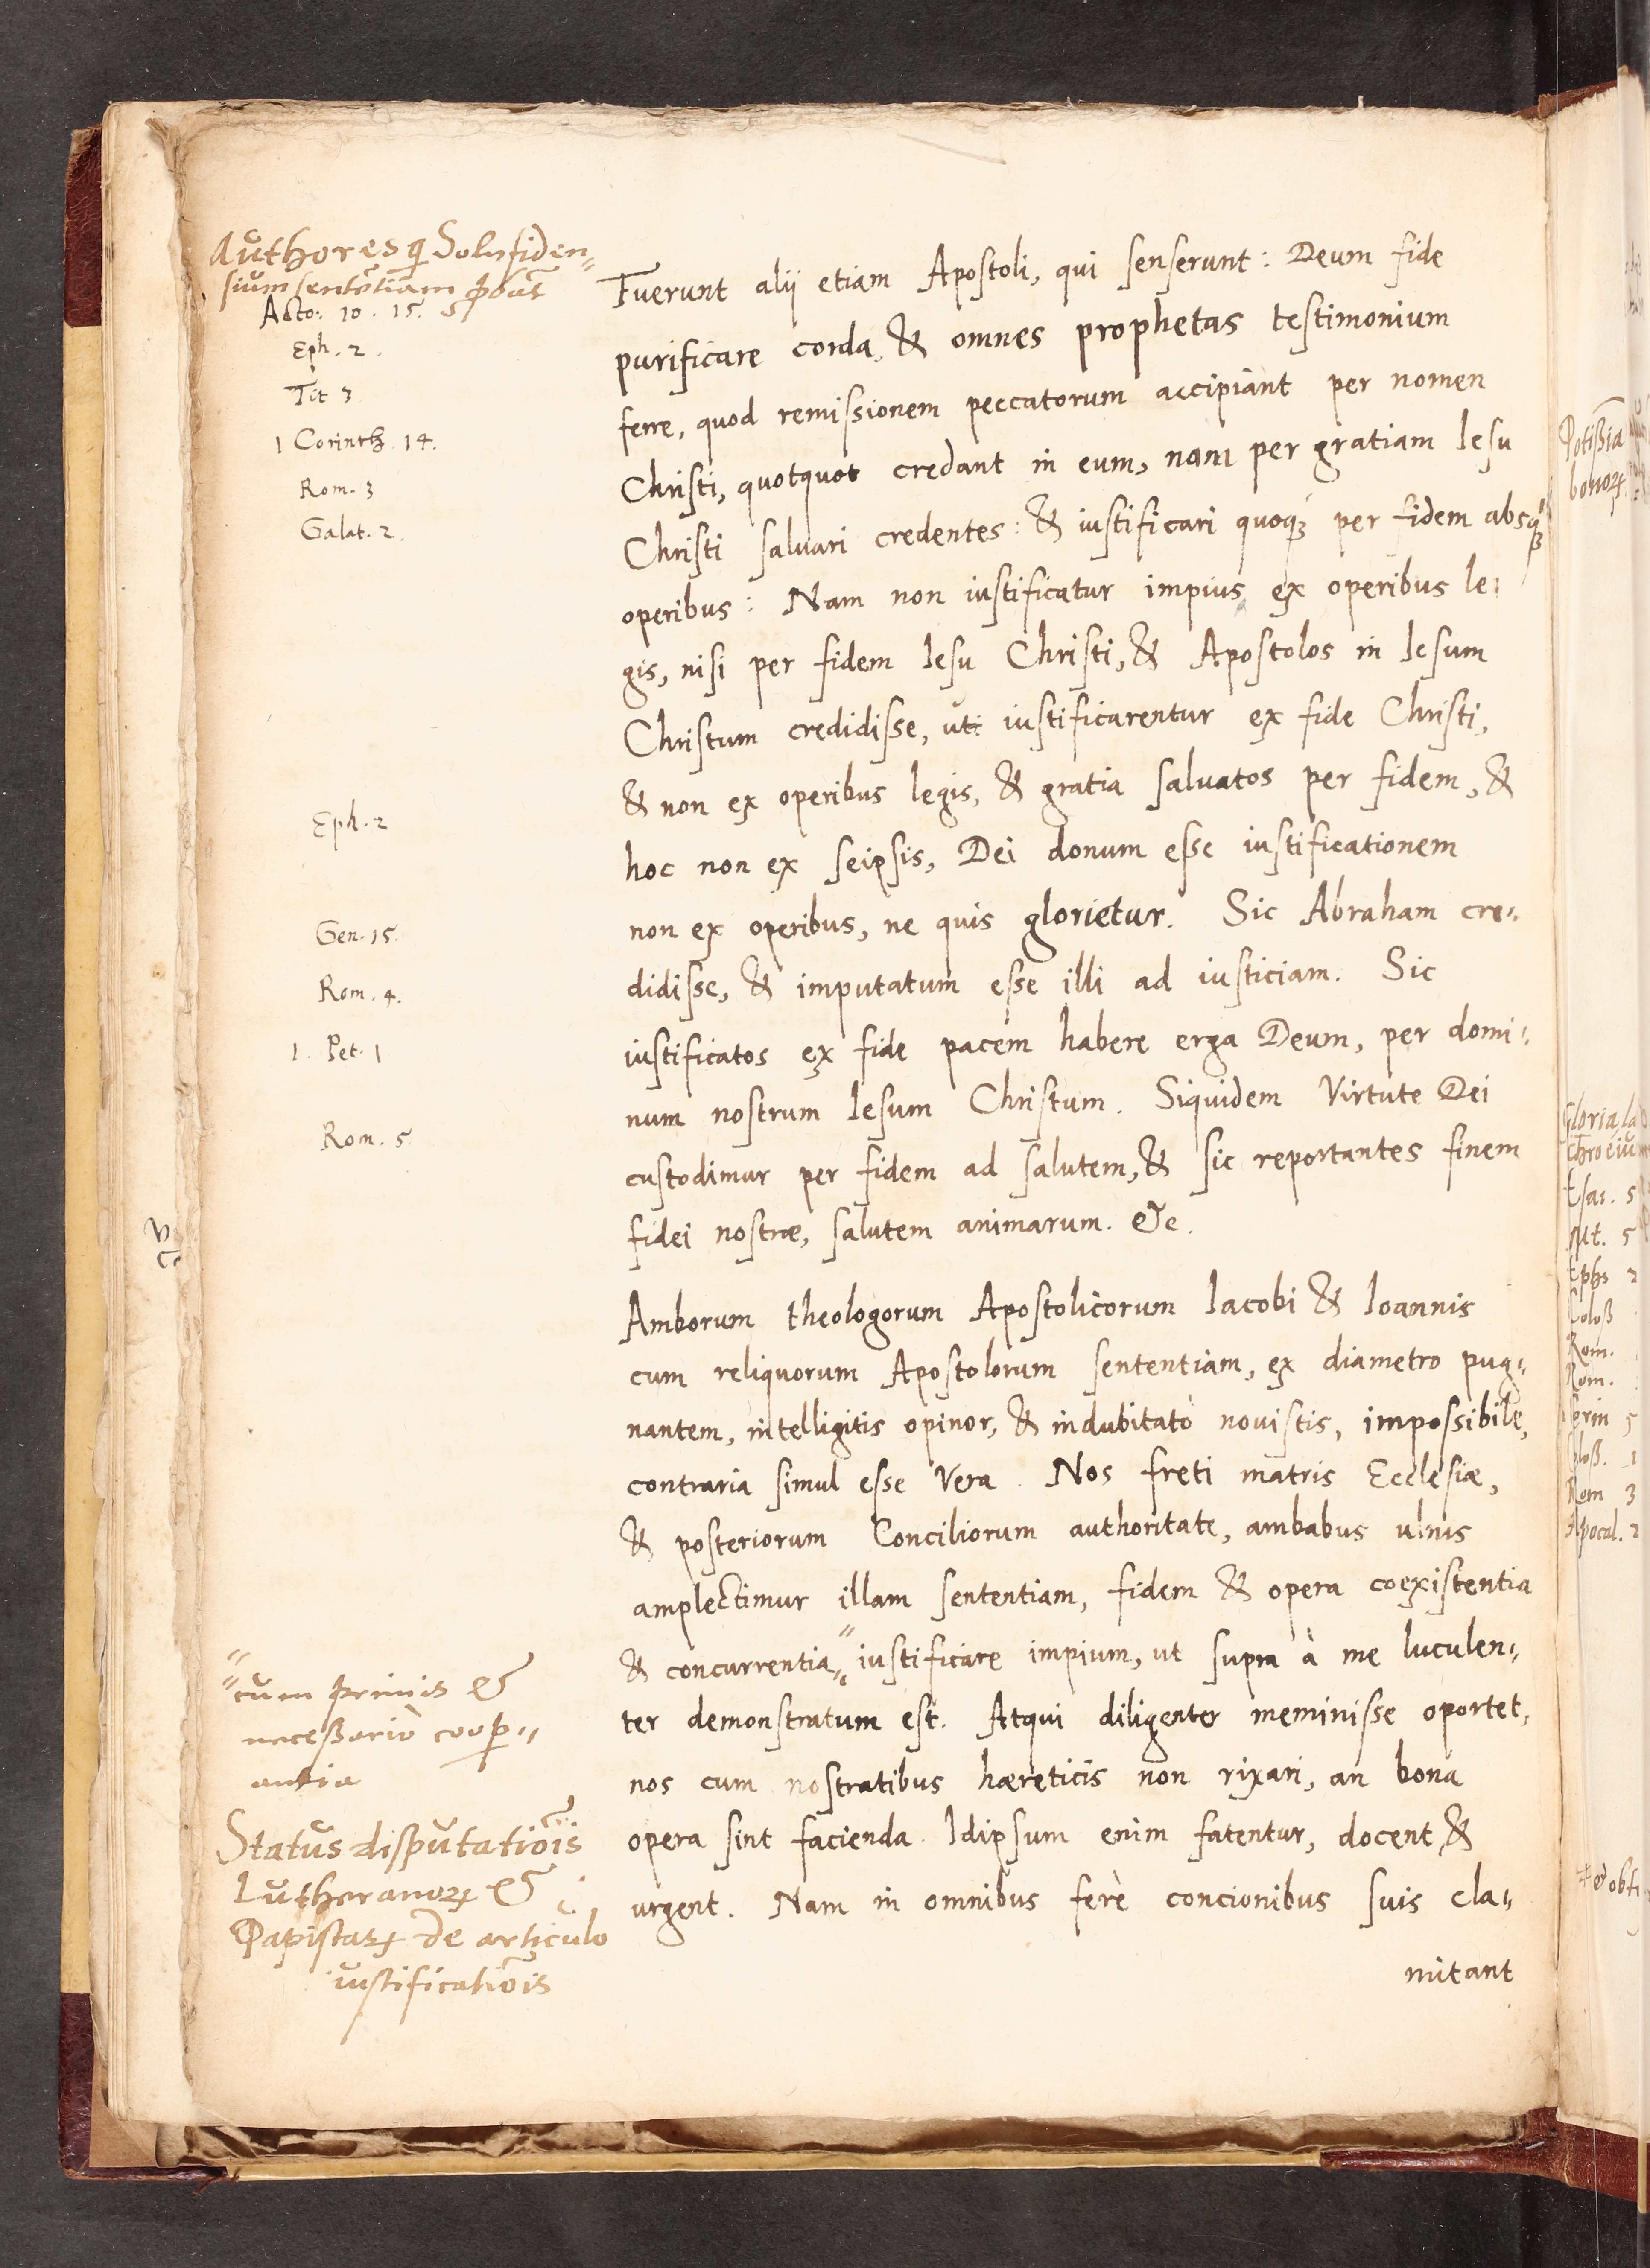 Authores q Solufiden„
sium sententiam
Acto: 10. 15.
Eph. 2.
Tit 3
1 Corinth. 14.
Rom. 3
Galat. 2.
Eph. 2
Gen. 15.
Rom. 4.
1. Pet. 1
Rom. 5.
Fuerunt alij etiam Apostoli, qui senserunt: Deum fide
purificare corda, & omnes prophetas testimonium
ferre, quod remissionem peccatorum accipiant per nomen
Christi, quotquot credant in eum, nam per gratiam Iesu
Christi saluari credentes: & iustificari quoqꝫ per fidem absqꝫ
operibus: Nam non iustificatur impius ex operibus le:
gis, nisi per fidem Iesu Christi, & Apostolos in Iesum
Christum credidisse, uti iustificarentur ex fide Christi,
& non ex operibus legis, & gratia saluatos per fidem, &
hoc non ex seipsis, Dei donum esse iustificationem
non ex operibus, ne quis glorietur. Sic Abraham cre:
didisse, & imputatum esse illi ad iusticiam. Sic
iustificatos ex fide pacem habere erga Deum, per domi:
num nostrum Iesum Christum. Siquidem Virtute Dei
custodimur per fidem ad salutem, & sic reportantes finem
fidei nostræ, salutem animarum. &c.
Amborum theologorum Apostolicorum Iacobi & Ioannis
cum reliquorum Apostolorum sententiam, ex diametro pug:
nantem, intelligitis opinor, & indubitatò nouistis, impossibile,
contraria simul esse Vera. Nos freti matris Ecclesiæ,
& posteriorum Conciliorum authoritate, ambabus ulnis
amplectimur illam sententiam, fidem & opera coexistentia
& concurrentia„ iustificare impium, ut supra à me luculen:
ter demonstratum est. Atqui diligenter meminisse oportet,
nos cum nostratibus hæreticis non rixari, an bona
opera sint facienda. Idipsum enim fatentur, docent, &
urgent. Nam in omnibus ferè concionibus suis cla:
mitant
„cum primis &
necessariò coop„
antia
Status disputatiois
Lutheranoꝝ &
Papistaꝝ de articulo
iustificatiois